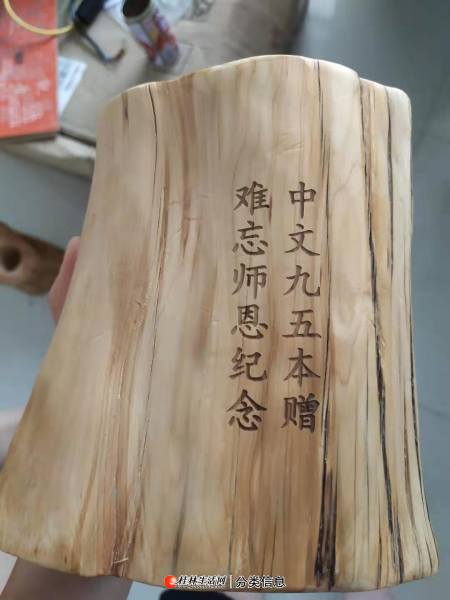 中文九五本赠
难忘师恩纪念
桂林生活网 分类信息